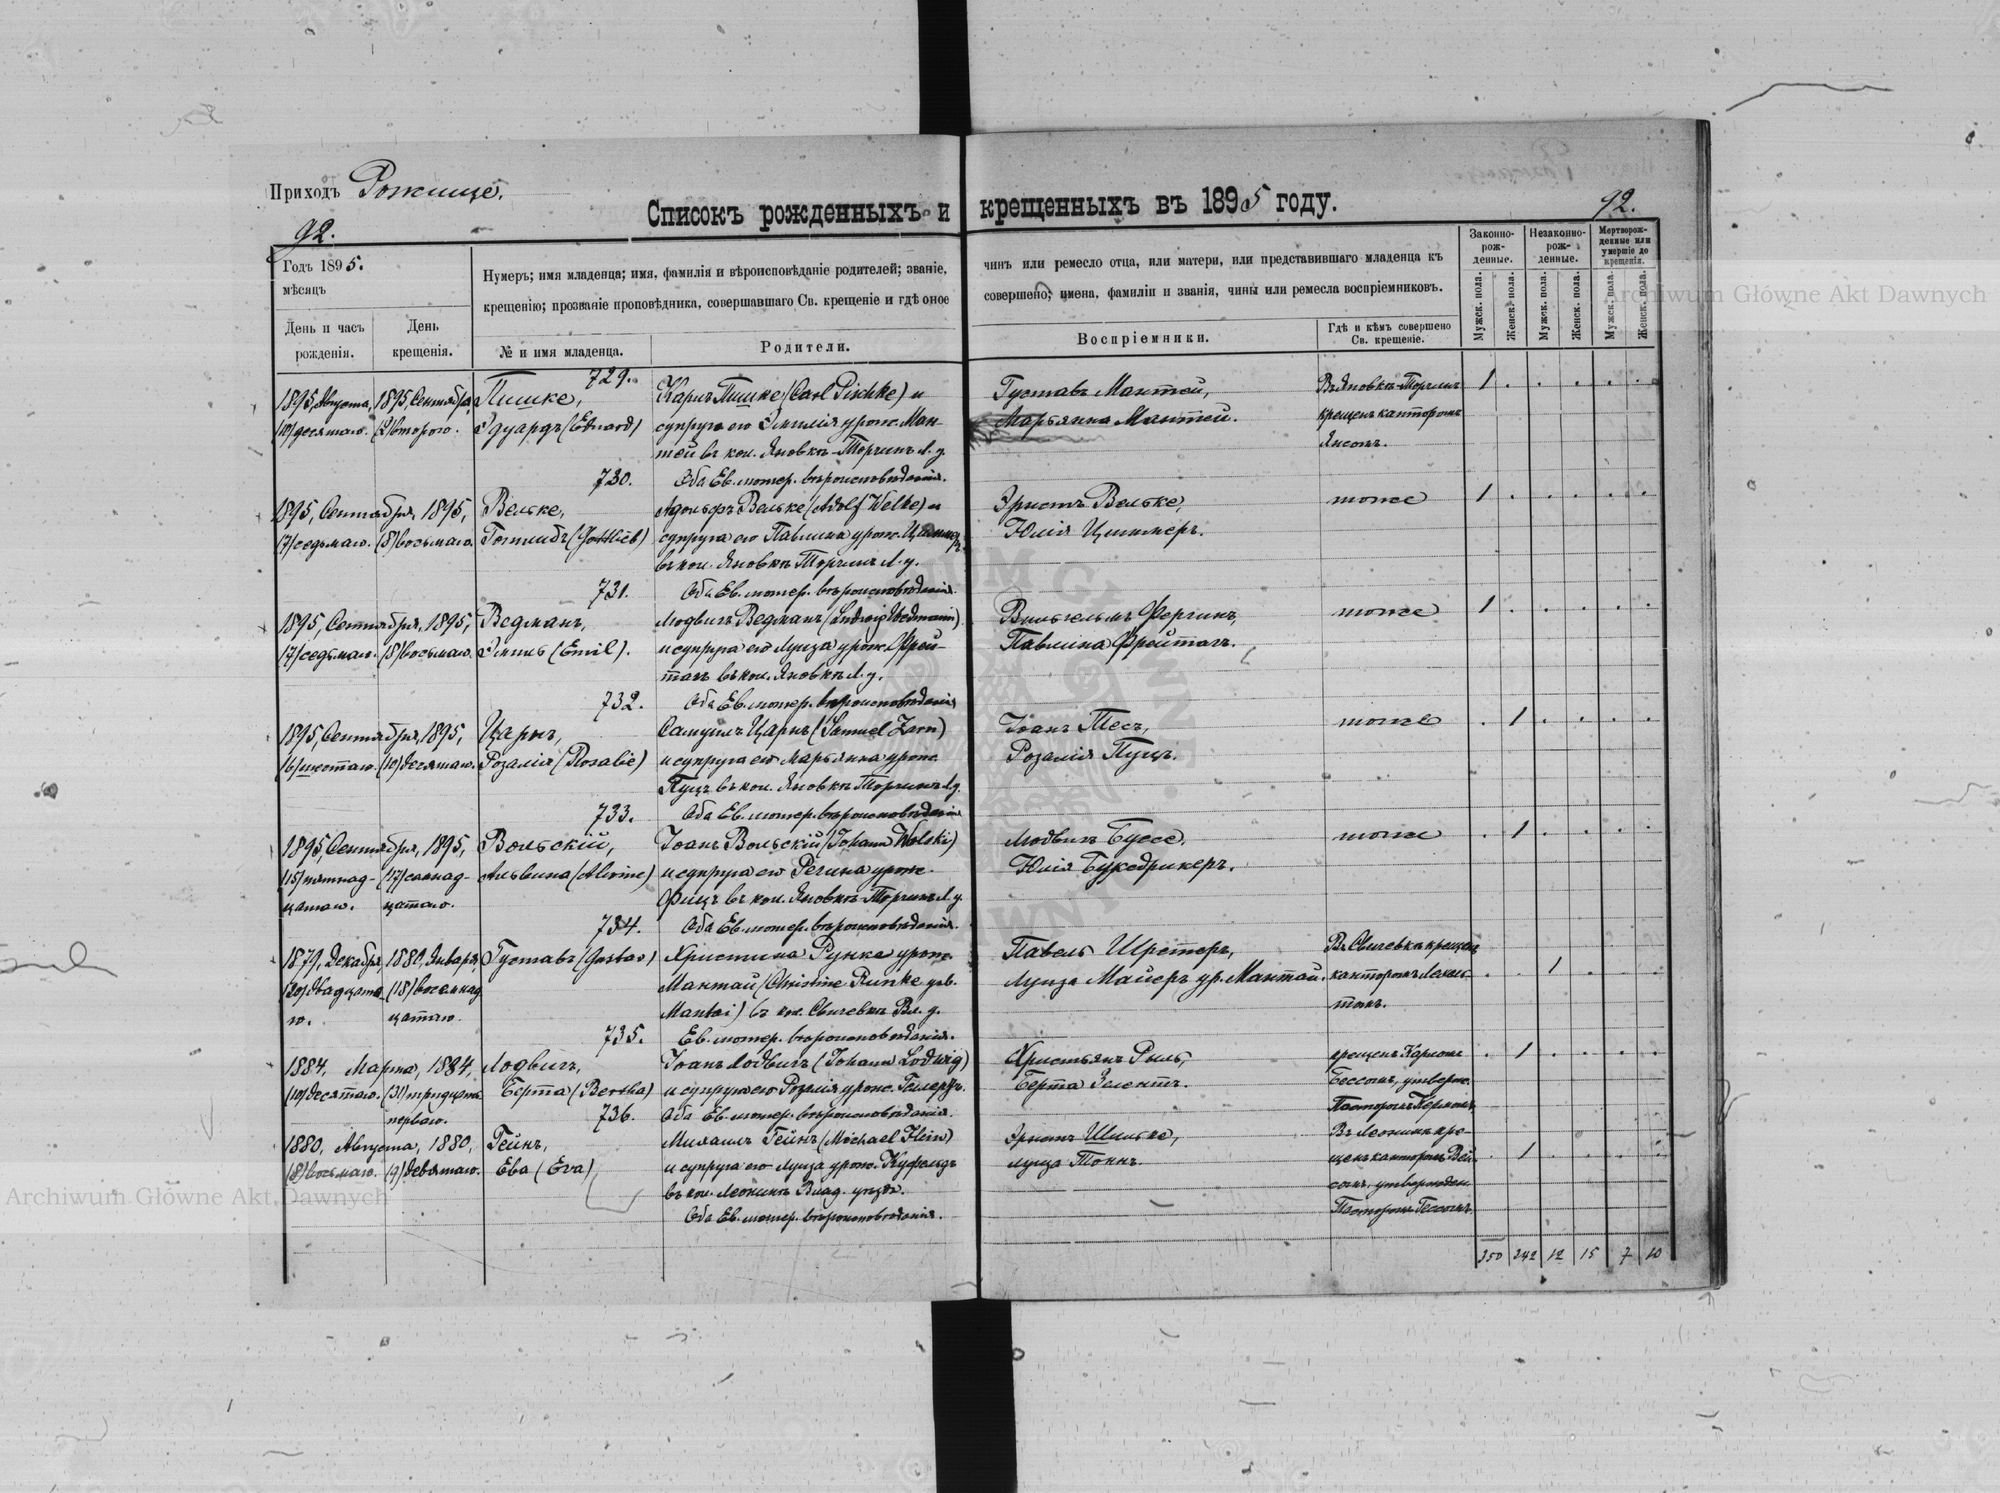 Приходъ Рожище.
Списокъ рожденныхъ и крещенныхъ въ 1895 году.
92.
92.
Годъ 1895.
мѣсяцъ
День и часъ рожденія.
День крещенія.
Нумеръ; имя младенца; имя, фамилія и вѣроисповѣданіе родителей; званіе, чинъ или ремесло отца, или матери, или представившаго младенца къ
крещенію; прозваніе проповѣдника, совершавшаго Св. крещеніе и гдѣ оное совершено; имена, фамиліи и званія, чины или ремесла воспріемниковъ.
№ и имя младенца.
Родители.
Воспріемники.
Гдѣ и кѣмъ совершено Св. крещеніе.
Законно-рож-денные.
Незаконно-рож-денные.
Мертворож-денные или умершіе до крещенія.
Мужск. пола.
Женск. пола.
Мужск. пола.
Женск. пола.
Мужск. пола.
Женск. пола.
729.
1895, Августа, 1895, Сентября, Пишке, Карлъ Пишке (Carl Pischke) и Густавъ Мантей, Въ Яновкѣ-Торчинъ 1
(10) десятаго. (2) второго. Эдуардъ (Eduard) супруга его Эмилія урож. Ман- Марьянна Мантей. крещенъ канторомъ
тей въ кол. Яновкѣ-Торчинъ Л. у. Янсомъ.
730. Оба Ев. лютер. вѣроисповѣданія.
1895, Сентября, 1895, Вельке, Адольфъ Вельке (Adolf Welke) и Эрнстъ Вельке, тоже 1
(7) седьмаго. (8) восьмаго. Готлибъ (Gottlieb) супруга его Павлина урож. Циммеръ Юлія Циммеръ.
въ кол. Яновкѣ Торчинъ Л. у.
731. Оба Ев. лютер. вѣроисповѣданія.
1895, Сентября, 1895, Ведманъ, Людвигъ Ведманъ (Ludwig Wedmann) Вильгельмъ Фергинъ, тоже 1
(7) седьмаго. (8) восьмаго. Эмиль (Emil). и супруга его Луиза урож. Фрей- Павлина Фрейтагъ.
тагъ въ кол. Яновкѣ Л. у.
732. Оба Ев. лютер. вѣроисповѣданія
1895, Сентября, 1895, Царнъ, Самуилъ Царнъ (Samuel Zarn) Іоанъ Тесъ, тоже 1
(6) шестаго. (10) десятаго. Розалія (Rosalie) и супруга его Марьянна урож. Розалія Пуцъ.
Пуцъ въ кол. Яновкѣ Торчинъ Л. у.
733. Оба Ев. лютер. вѣроисповѣданія
1895, Сентября, 1895, Вольскій, Іоанъ Вольскій (Johann Wolski) Людвигъ Буссе, тоже 1
(15) пятнад- (17) семнад- Альвина (Alwine) и супруга его Регина урож. Юлія Буксдрикеръ.
цатаго. цатаго. Фицъ въ кол. Яновкѣ-Торчинъ Л. у.
734. Оба Ев. лютер. вѣроисповѣданія.
1879, Декабря, 1880, Января, Густавъ (Gustav) Христина Рунке урож. Павелъ Шретеръ, Въ Свичевкѣ крещенъ 1
(20) двадцата- (18) восемнад- Мантай (Christine Runke geb. Луиза Майеръ ур. Мантай. канторомъ
го. цатаго. Mantai) въ кол. Свичевкѣ Вл. у.
735. Ев. лютер. вѣроисповѣданія.
1884, Марта, 1884, Лодвигъ, Іоанъ Лодвигъ (Johann Lodwig) Христьянъ Рыль, крещенъ Карломъ 1
(10) десятаго. (31) тридцать Берта (Bertha) и супруга его Розалія урож. Берта Зелентъ. Бессомъ, утвержд.
первого. 736. Оба Ев. лютер. вѣроисповѣданія. Пасторомъ
1880, Августа, 1880, Гейнъ, Михаилъ Гейнъ (Michael Hein) Эрнстъ Шильке, Въ Леонинѣ кре- 1
(8) восьмаго. (9) девятаго. Ева (Eva) и супруга его Луиза урож. Куфельдъ Луиза Тонъ. щенъ канторомъ Вей-
въ кол. Леонинѣ Влад. уѣзда. сомъ, утвержден
Оба Ев. лютер. вѣроисповѣданія. Пасторомъ
350 242 12 15 7 10
Archiwum Główne Akt Dawnych
Archiwum Główne Akt Dawnych